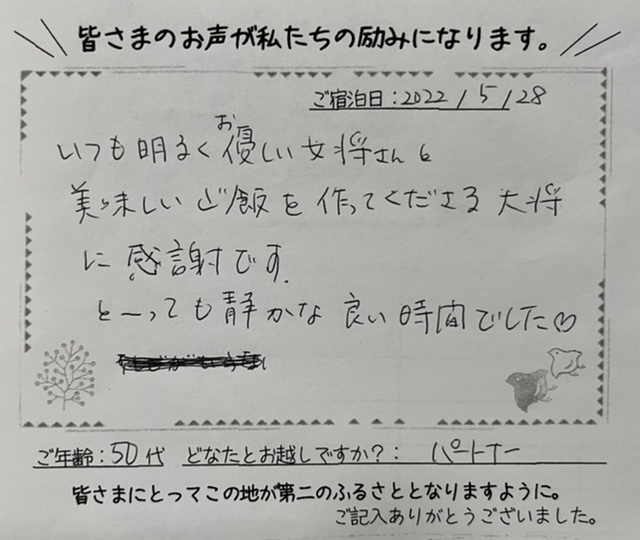 皆さまのお声が私たちの励みになります。
ご宿泊日:2022/5/28
いつも明るくお優しい女将さんと
美味しいご飯を作ってくださる大将
に感謝です.
とーっても静かな良い時間でした♡
ご年齢:50代 どなたとお越しですか?: パートナー
皆さまにとってこの地が第二のふるさととなりますように。
ご記入ありがとうございました。